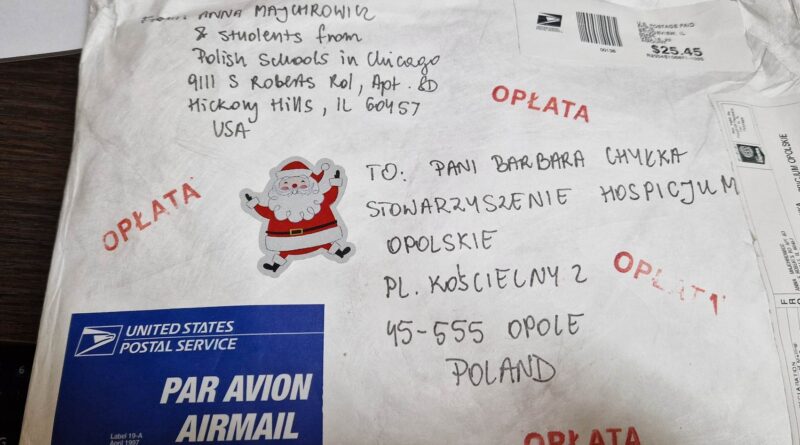 From: ANNA MAJCHROWICZ
& students from
Polish Schools in Chicago
9111 S Roberts Rd, Apt. 8D
Hickory Hills, IL 60457
USA
U.S. POSTAGE PAID
$25.45
00136
OPŁATA
OPŁATA
TO: PANI BARBARA CHYŁKA
STOWARZYSZENIE HOSPICJUM
OPOLSKIE
PL. KOŚCIELNY 2
45-555 OPOLE
POLAND
OPŁATA
UNITED STATES
POSTAL SERVICE
PAR AVION
AIRMAIL
Label 19-A
April 1997
OPŁATA